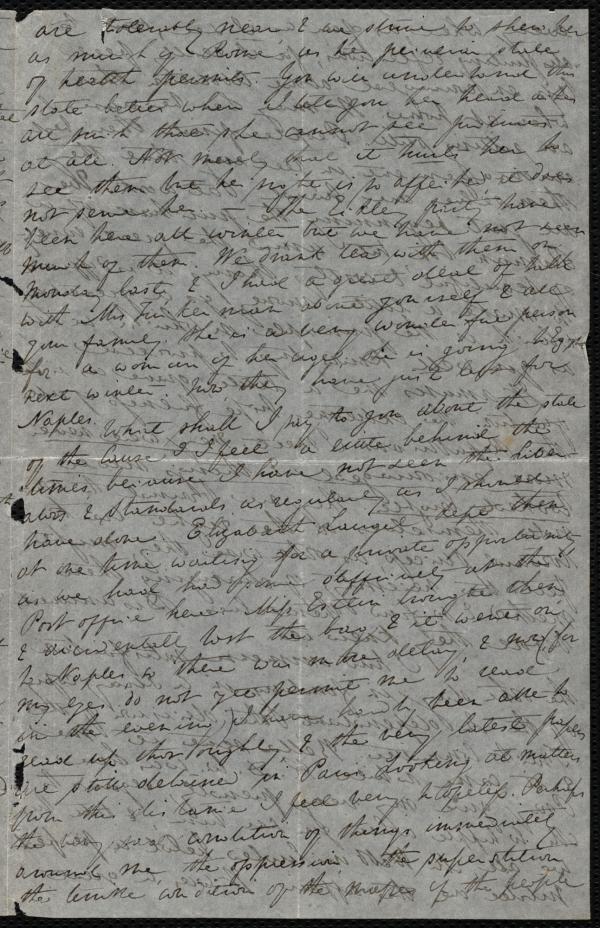 are tolerably near & we strive to shew her
as much of Rome as her peculiar state
of health permits. You will understand this
state better when I tell you her head aches
are such that she cannot see pictures
at all. Not merely that it hurts her to
see them but her sight is so affected it does
not serve her. The Eddy party have
been here all winter but we have not seen
much of them. We drank tea with them on
Monday last, & I had a great deal of talk
with Mrs about yourself & all
your family. She is a very wonderful person
for a woman of her age. She is going to Egypt
next winter. Now they have just left for
Naples.
What shall I say to you about the state
of the cause? I feel a little behind the
times because I have not seen the Liber-
ators & Standards as regularly as I should
have done. Elizabeth kept them
at one time waiting for a private opportunity
as we have had some difficulty at the
Post office here. Miss Estlin brought them
& accidentally lost the box, & it went on
to Naples so there was more delay, & now (for
my eyes do not yet permit me to read
in the evening) I have hardly been able to
read up thoroughly, & the very latest papers
are still detained in Paris. Looking at matters
from this distance I feel very hopeless. Perhaps
the very sad condition of things immediately
around me the oppression, the superstition
the condition of the masses of the people